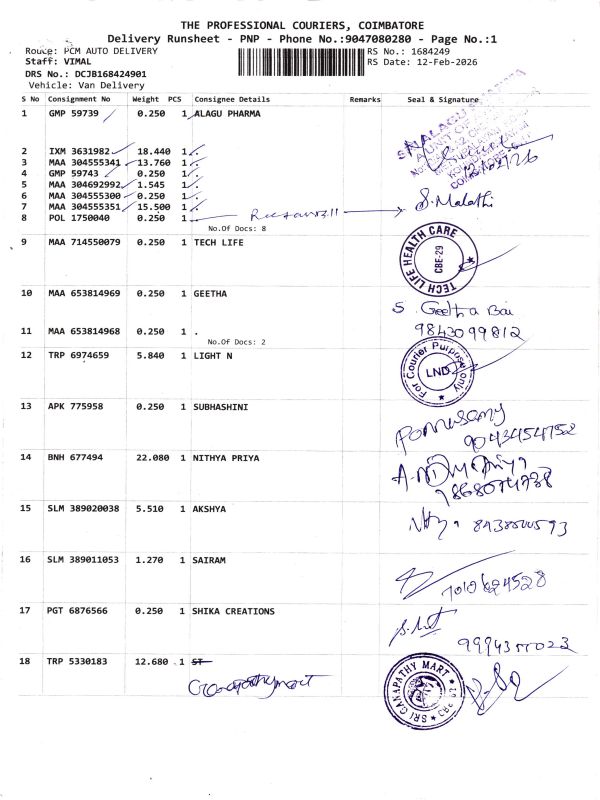 THE PROFESSIONAL COURIERS, COIMBATORE
Delivery Runsheet - PNP - Phone No.:9047080280 - Page No.:1
Route: PCM AUTO DELIVERY
RS No.: 1684249
Staff: VIMAL
RS Date: 12-Feb-2026
DRS No.: DCJB168424901
Vehicle: Van Delivery
S No Consignment No Weight PCS Consignee Details Remarks Seal & Signature
1 GMP 59739 0.250 1 ALAGU PHARMA
2 IXM 3631982 18.440 1 .
3 MAA 304555341 13.760 1 .
4 GMP 59743 0.250 1 .
5 MAA 304692992 1.545 1 .
6 MAA 304555300 0.250 1 .
7 MAA 304555351 15.500 1 .
8 POL 1750040 0.250 1 .
S. Malathi
No.Of Docs: 8
9 MAA 714550079 0.250 1 TECH LIFE
TECH LIFE HEALTH CARE
CBE-29
10 MAA 653814969 0.250 1 GEETHA
S. Geetha Bai
9843099812
11 MAA 653814968 0.250 1 .
No.Of Docs: 2
12 TRP 6974659 5.840 1 LIGHT N
For Courier Purpose only
LND
13 APK 775958 0.250 1 SUBHASHINI
14 BNH 677494 22.080 1 NITHYA PRIYA
15 SLM 389020038 5.510 1 AKSHYA
16 SLM 389011053 1.270 1 SAIRAM
7010624528
17 PGT 6876566 0.250 1 SHIKA CREATIONS
18 TRP 5330183 12.680 1 ST
Ganapathymart
SRI GANAPATHY MART